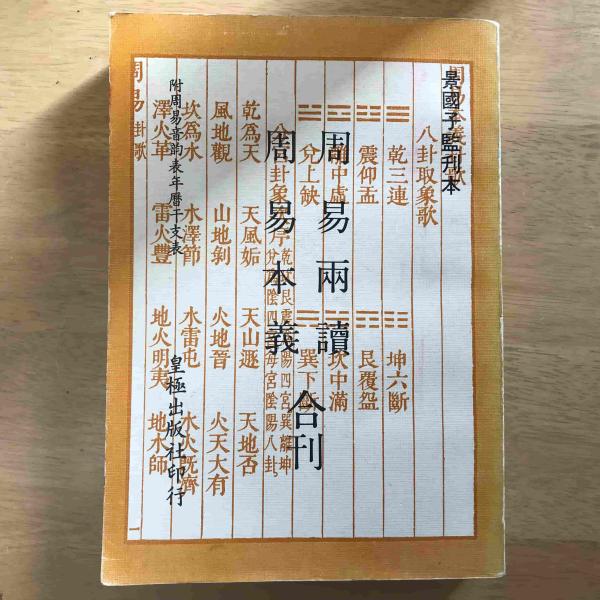 景國子監刊本
周易兩讀
周易本義
合刊
附周易音韵表年曆干支表
皇極出版社印行
八卦取象歌
☰ 乾三連
☷ 坤六斷
☳ 震仰盂
☶ 艮覆盌
中虛
坎中滿
兌上缺
巽下
乾為天 天風姤 天山遯 天地否
風地觀 山地剝 火地晉 火天大有
坎為水 水澤節 水雷屯 水火既濟
澤火革 雷火豐 地火明夷 地水師
周易 卦歌 一